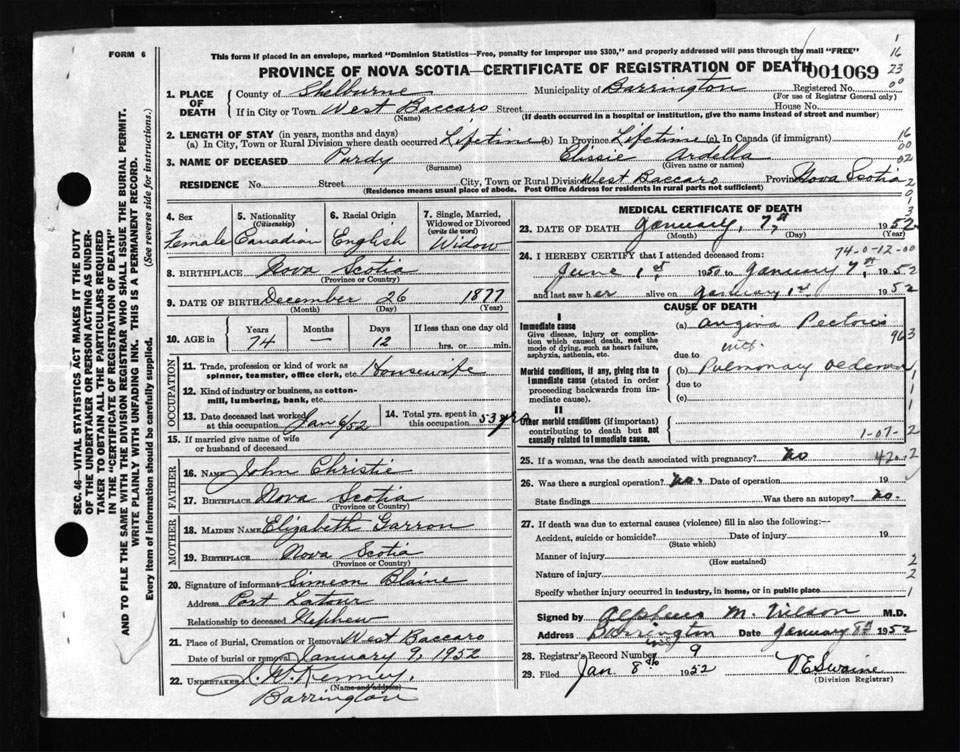 FORM 6
This form if placed in an envelope, marked "Dominion Statistics—Free, penalty for improper use $300," and properly addressed will pass through the mail "FREE"
PROVINCE OF NOVA SCOTIA—CERTIFICATE OF REGISTRATION OF DEATH
001069
1. PLACE OF DEATH
County of Shelburne Municipality of Barrington Registered No.
(For use of Registrar General only)
If in City or Town West Baccaro Street House No.
(Name) (If death occurred in a hospital or institution, give the name instead of street and number)
2. LENGTH OF STAY (in years, months and days)
(a) In City, Town or Rural Division where death occurred Lifetime (b) In Province Lifetime (c) In Canada (if immigrant)
3. NAME OF DECEASED Purdy Elissie Ardella
(Surname) (Given name or names)
RESIDENCE No. Street City, Town or Rural Division West Baccaro Province Nova Scotia
(Residence means usual place of abode. Post Office Address for residents in rural parts not sufficient)
4. Sex
Female
5. Nationality
(Citizenship)
Canadian
6. Racial Origin
English
7. Single, Married, Widowed or Divorced
(write the word)
Widow
8. BIRTHPLACE Nova Scotia
(Province or Country)
9. DATE OF BIRTH December 26 1877
(Month) (Day) (Year)
10. AGE
Years Months Days If less than one day old
74 — 12 hrs. or min.
OCCUPATION
11. Trade, profession or kind of work as spinner, teamster, office clerk, etc. Housewife
12. Kind of industry or business, as cotton-mill, lumbering, bank, etc.
13. Date deceased last worked at this occupation Jan 6/52
14. Total yrs. spent in this occupation 53 yrs
15. If married give name of wife or husband of deceased
FATHER
16. NAME John Christie
17. BIRTHPLACE Nova Scotia
(Province or Country)
MOTHER
18. MAIDEN NAME Elizabeth Garron
19. BIRTHPLACE Nova Scotia
(Province or Country)
20. Signature of informant Simeon Blaine
Address Port Latour
Relationship to deceased Nephew
21. Place of Burial, Cremation or Removal West Baccaro
Date of burial or removal January 9, 1952
22. UNDERTAKER J. W. Kenney,
(Name and address)
Barrington
MEDICAL CERTIFICATE OF DEATH
23. DATE OF DEATH January, 7th 1952
(Month) (Day) (Year)
74-0-12-00
24. I HEREBY CERTIFY that I attended deceased from:
June 1st, 1950 to January 7th, 1952
and last saw her alive on January 1st 1952
CAUSE OF DEATH
I
Immediate cause
Give disease, injury or complication which caused death, not the mode of dying, such as heart failure, asphyxia, asthenia, etc.
(a) Angina Pectoris
with
due to
Morbid conditions, if any, giving rise to immediate cause (stated in order proceeding backwards from immediate cause).
(b) Pulmonary Oedema
due to
(c)
II
Other morbid conditions (if important) contributing to death but not causally related to immediate cause.
1-07-2
25. If a woman, was the death associated with pregnancy? No
420.2
26. Was there a surgical operation? No. Date of operation 19
State findings Was there an autopsy? No.
27. If death was due to external causes (violence) fill in also the following:—
Accident, suicide or homicide? Date of injury 19
(State which)
Manner of injury
(How sustained)
Nature of injury
Specify whether injury occurred in industry, in home, or in public place
Signed by Alpheus M. Wilson M.D.
Address Barrington Date January 8th 1952
28. Registrar's Record Number 9
29. Filed Jan 8th 1952 V E Swaine
(Division Registrar)
SEC. 46—VITAL STATISTICS ACT MAKES IT THE DUTY OF THE UNDERTAKER OR PERSON ACTING AS UNDERTAKER TO OBTAIN ALL THE PARTICULARS REQUIRED IN THE "CERTIFICATE OF REGISTRATION OF DEATH" AND TO FILE THE SAME WITH THE DIVISION REGISTRAR WHO SHALL ISSUE THE BURIAL PERMIT.
WRITE PLAINLY WITH UNFADING INK. THIS IS A PERMANENT RECORD.
Every item of information should be carefully supplied. (See reverse side for instructions.)